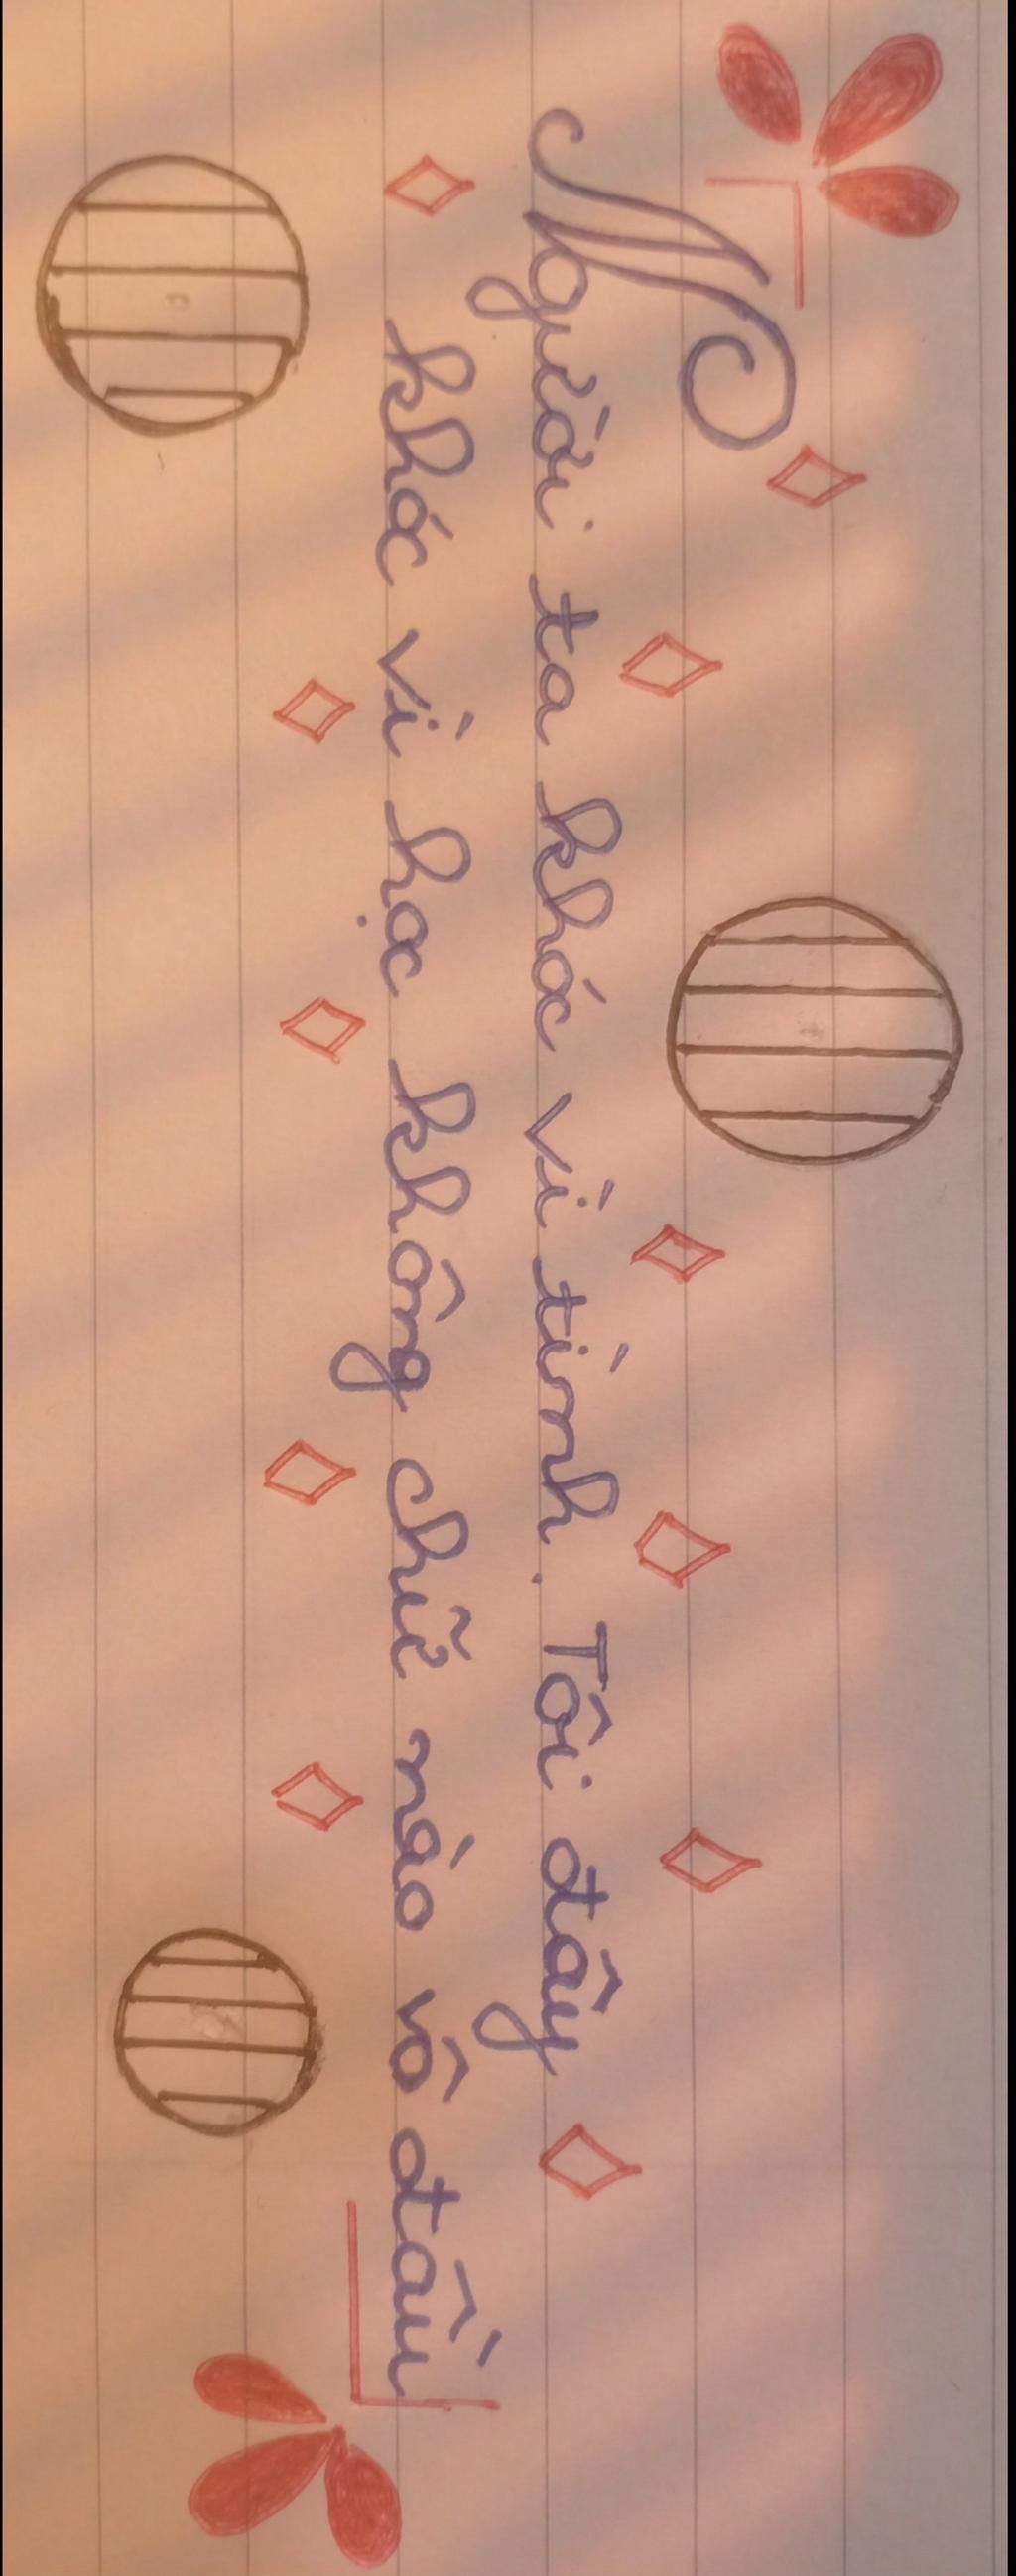 Người ta khóc vì tình. Tôi đây
khóc vì học không chữ nào vô đầu